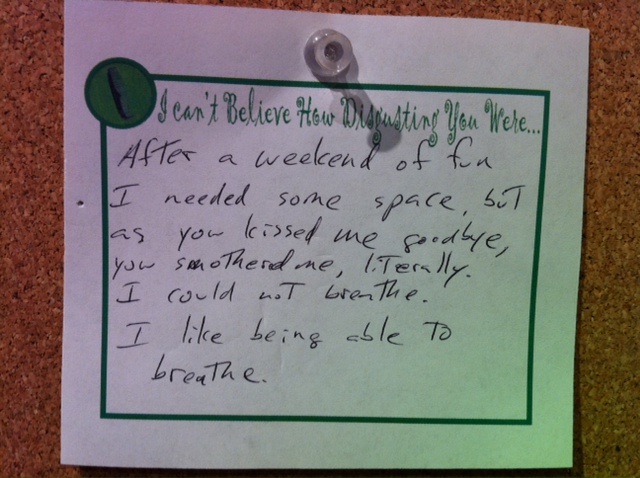 I can't Believe How Disgusting You Were...
After a weekend of fun
I needed some space, but
as you kissed me goodbye,
you smotherd me, literally.
I could not breathe.
I like being able to
breathe.